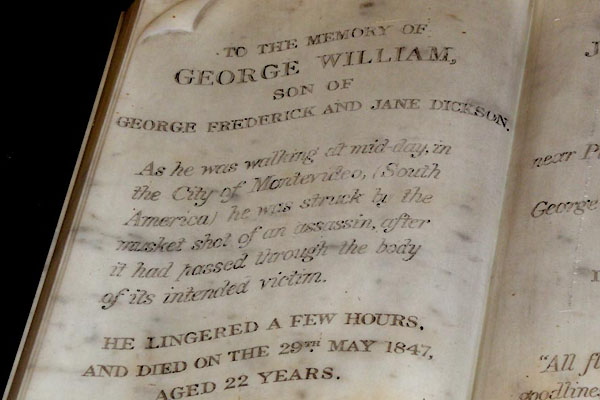 TO THE MEMORY OF
GEORGE WILLIAM,
SON OF
GEORGE FREDERICK AND JANE DICKSON.
As he was walking at mid-day, in
the City of Montevideo, (South
America) he was struck by the
musket shot of an assassin, after
it had passed through the body
of its intended victim.
HE LINGERED A FEW HOURS,
AND DIED ON THE 29TH MAY 1847,
AGED 22 YEARS.
J
near P
George
"All fl
goodline